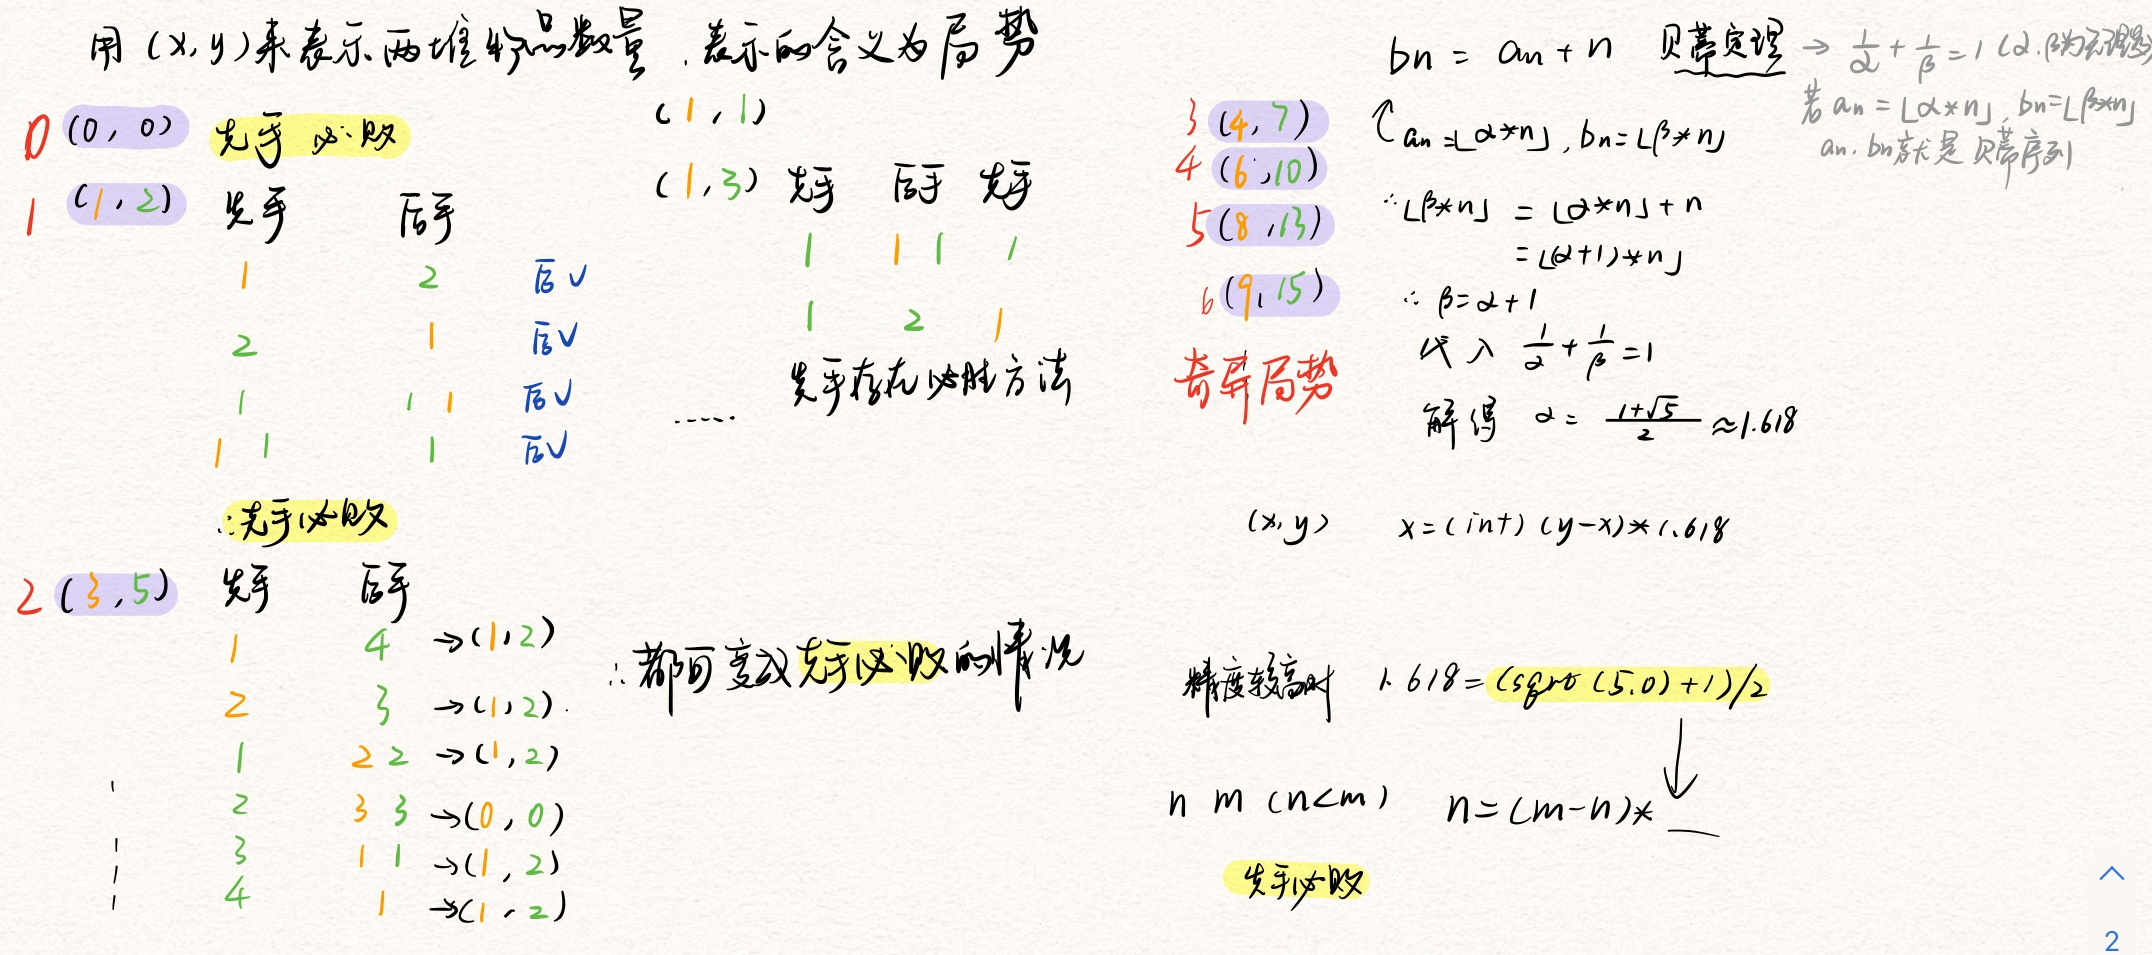 用 (x, y) 来表示两堆物品数量, 表示的含义为局势
0 (0, 0) 先手必败
1 (1, 2) 先手 后手
1 2 后√
2 1 后√
1 1 1 后√
1 1 1 后√
∴先手必败
2 (3, 5) 先手 后手
1 4 →(1, 2)
2 3 →(1, 2).
1 2 2 →(1, 2)
2 3 3 →(0, 0)
3 1 1 →(1, 2)
4 1 →(1, 2)
∴都可变成先手必败的情况
(1, 1)
(1, 3) 先手 后手 先手
1 1 1 1
1 2 1
先手存在必胜方法
......
3 (4, 7)
4 (6, 10)
5 (8, 13)
6 (9, 15)
奇异局势
bn = an + n 贝蒂定理 → 1/α + 1/β = 1 (α.β为无理数)
若 an = ⌊α*n⌋, bn=⌊β*n⌋
an. bn就是贝蒂序列
↑ an =⌊α*n⌋, bn=⌊β*n⌋
∵⌊β*n⌋ = ⌊α*n⌋ + n
= ⌊(α+1)*n⌋
∴ β=α+1
代入 1/α + 1/β = 1
解得 α = (1+√5)/2 ≈1.618
(x, y) x = (int) (y-x)*1.618
精度较高时 1.618 = (sqrt(5.0)+1)/2
n m (n<m) n=(m-n)*__
先手必败
2